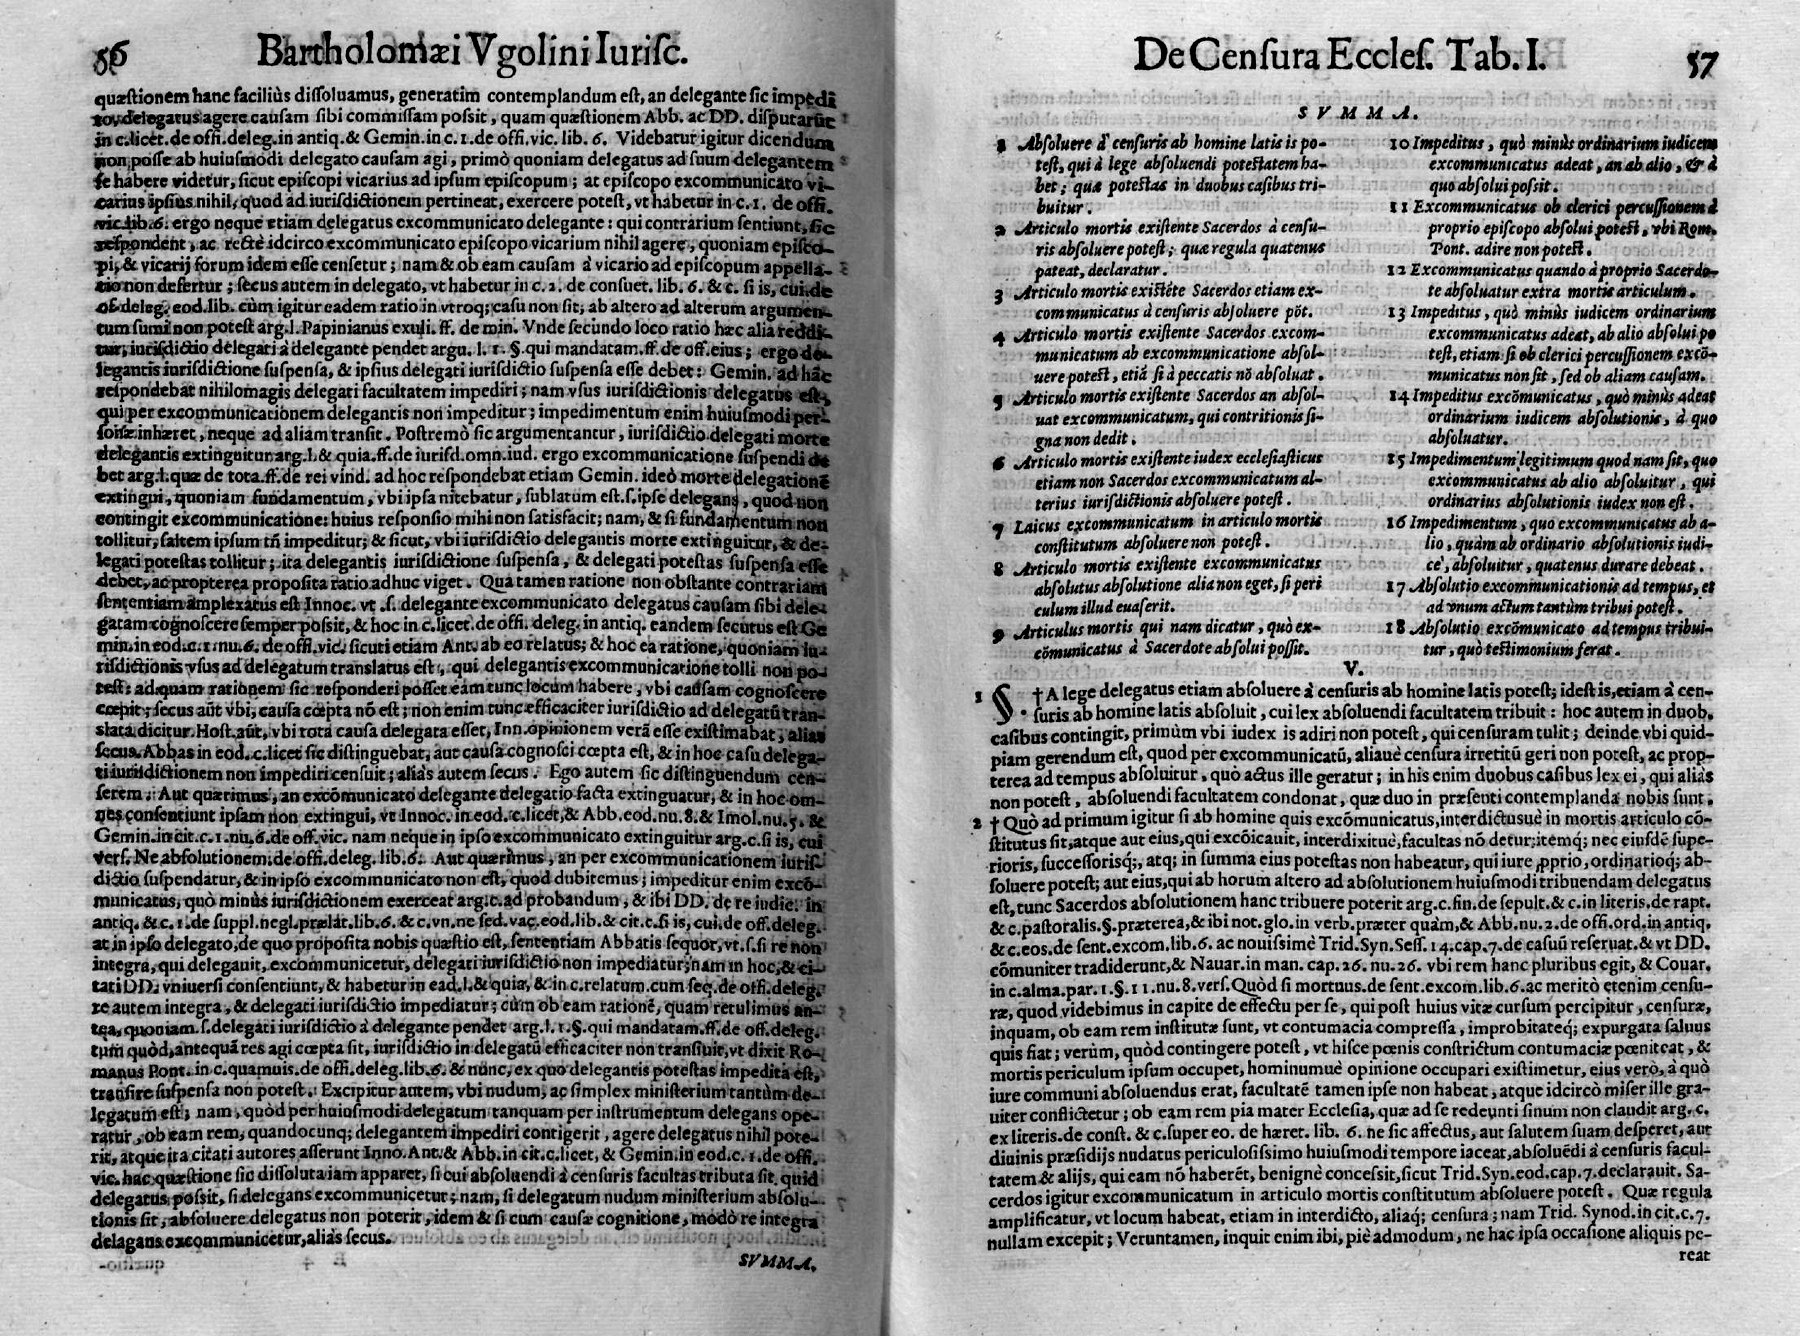 56
Bartholomæi Vgolini Iurisc.
quæstionem hanc faciliùs dissoluamus, generatim contemplandum est, an delegante sic impedi
to, delegatus agere causam sibi commissam possit, quam quæstionem Abb. ac DD. disputarũt
in c. licet. de offi. deleg. in antiq. & Gemin. in c. 1. de offi. vic. lib. 6. Videbatur igitur dicendum
non posse ab huiusmodi delegato causam agi, primò quoniam delegatus ad suum delegantem
se habere videtur, sicut episcopi vicarius ad ipsum episcopum; at episcopo excommunicato vi-
carius ipsius nihil, quod ad iurisdictionem pertineat, exercere potest, vt habetur in c. 1. de offi.
vic. lib. 6. ergo neque etiam delegatus excommunicato delegante: qui contrarium sentiunt, sic
respondent, ac rectè idcirco excommunicato episcopo vicarium nihil agere, quoniam episco-
pi, & vicarij forum idem esse censetur; nam & ob eam causam à vicario ad episcopum appella-
tio non defertur; secus autem in delegato, vt habetur in c. 2. de consuet. lib. 6. & c. si is, cui. de
of. deleg. eod. lib. cùm igitur eadem ratio in vtroq; casu non sit; ab altero ad alterum argumen-
tum sumi non potest arg. l. Papinianus exuli. ff. de min. Vnde secundo loco ratio hæc alia reddi-
tur, iurisdictio delegati à delegante pendet argu. l. 1. §. qui mandatam. ff. de off. eius; ergo de-
legantis iurisdictione suspensa, & ipsius delegati iurisdictio suspensa esse debet: Gemin. ad hãc
respondebat nihilomagis delegati facultatem impediri; nam vsus iurisdictionis delegatus est,
qui per excommunicationem delegantis non impeditur; impedimentum enim huiusmodi per-
sonæ inhæret, neque ad aliam transit. Postremò sic argumentantur, iurisdictio delegati morte
delegantis extinguitur arg. l. & quia. ff. de iurisd. omn. iud. ergo excommunicatione suspendi de
bet arg. l. quæ de tota. ff. de rei vind. ad hoc respondebat etiam Gemin. ideò morte delegationẽ
extingui, quoniam fundamentum, vbi ipsa nitebatur, sublatum est. s. ipse delegans, quod non
contingit excommunicatione: huius responsio mihi non satisfacit; nam, & si fundamentum non
tollitur, saltem ipsum tñ impeditur; & sicut, vbi iurisdictio delegantis morte extinguitur, & de-
legati potestas tollitur; ita delegantis iurisdictione suspensa, & delegati potestas suspensa esse
debet, ac propterea proposita ratio adhuc viget. Qua tamen ratione non obstante contrariam
sententiam amplexatus est Innoc. vt .s. delegante excommunicato delegatus causam sibi dele-
gatam cognoscere semper possit, & hoc in c. licet. de offi. deleg. in antiq. eandem secutus est Ge
min. in eod. c. 1. nu. 6. de offi. vic. sicuti etiam Ant. ab eo relatus; & hoc ea ratione, quoniam iu-
risdictionis vsus ad delegatum translatus est, qui delegantis excommunicatione tolli non po-
test: ad quam rationem sic responderi posset eam tunc locum habere, vbi causam cognoscere
cœpit; secus aũt vbi, causa cœpta nõ est; non enim tunc efficaciter iurisdictio ad delegatũ tran-
slata dicitur. Host. aũt, vbi tota causa delegata esset, Inn. opinionem verã esse existimabat, aliàs
secus. Abbas in eod. c. licet sic distinguebat, aut causa cognosci cœpta est, & in hoc casu delega-
ti iurisdictionem non impediri censuit; aliàs autem secus. Ego autem sic distinguendum cen-
serem. Aut quærimus, an excõmunicato delegante delegatio facta extinguatur, & in hoc om-
nes consentiunt ipsam non extingui, vt Innoc. in eod. c. licet, & Abb. eod. nu. 8. & Imol. nu. 5. &
Gemin. in cit. c. 1. nu. 6. de off. vic. nam neque in ipso excommunicato extinguitur arg. c. si is, cui
vers. Ne absolutionem. de offi. deleg. lib. 6. Aut quærimus, an per excommunicationem iuris-
dictio suspendatur, & in ipso excommunicato non est, quod dubitemus; impeditur enim excõ-
municatus, quò minùs iurisdictionem exerceat arg. c. ad probandum, & ibi DD. de re iudic. in
antiq. & c. 1. de suppl. negl. prælat. lib. 6. & c. vn. ne sed. vac. eod. lib. & cit. c. si is, cui. de off. deleg.
at in ipso delegato, de quo proposita nobis quæstio est, sententiam Abbatis sequor, vt .s. si re non
integra, qui delegauit, excommunicetur, delegati iurisdictio non impediatur; nam in hoc, & ci-
tati DD. vniuersi consentiunt, & habetur in ead. l. & quia, & in c. relatum. cum seq. de offi. deleg.
re autem integra, & delegati iurisdictio impediatur; cùm ob eam rationẽ, quam retulimus an-
tea, quoniam .s. delegati iurisdictio à delegante pendet arg. l. 1. §. qui mandatam. ff. de off. deleg.
tum quòd, antequã res agi cœpta sit, iurisdictio in delegatũ efficaciter non transiuit, vt dixit Ro-
manus Pont. in c. quamuis. de offi. deleg. lib. 6. & nunc, ex quo delegantis potestas impedita est,
transire suspensa non potest. Excipitur autem, vbi nudum, ac simplex ministerium tantùm de-
legatum est; nam, quòd per huiusmodi delegatum tanquam per instrumentum delegans ope-
ratur, ob eam rem, quandocunq; delegantem impediri contigerit, agere delegatus nihil pote-
rit, atque ita citati autores asserunt Inno. Ant. & Abb. in cit. c. licet, & Gemin. in eod. c. 1. de offi.
vic. hac quæstione sic dissoluta iam apparet, si cui absoluendi à censuris facultas tributa sit, quid
delegatus possit, si delegans excommunicetur; nam, si delegatum nudum ministerium absolu-
tionis sit, absoluere delegatus non poterit, idem & si cum causæ cognitione, modò re integra
delagans excommunicetur, aliàs secus.
SVMMA.
De Censura Eccles. Tab. I.
57
SVMMA.
1 Absoluere à censuris ab homine latis is po-
test, qui à lege absoluendi potestatem ha-
bet; quæ potestas in duobus casibus tri-
buitur.
2 Articulo mortis existente Sacerdos à censu-
ris absoluere potest; quæ regula quatenus
pateat, declaratur.
3 Articulo mortis existẽte Sacerdos etiam ex-
communicatus à censuris absoluere põt.
4 Articulo mortis existente Sacerdos excom-
municatum ab excommunicatione absol-
uere potest, etiã si à peccatis nõ absoluat.
5 Articulo mortis existente Sacerdos an absol-
uat excommunicatum, qui contritionis si-
gna non dedit.
6 Articulo mortis existente iudex ecclesiasticus
etiam non Sacerdos excommunicatum al-
terius iurisdictionis absoluere potest.
7 Laicus excommunicatum in articulo mortis
constitutum absoluere non potest.
8 Articulo mortis existente excommunicatus
absolutus absolutione alia non eget, si peri
culum illud euaserit.
9 Articulus mortis qui nam dicatur, quò ex-
cõmunicatus à Sacerdote absolui possit.
10 Impeditus, quò minùs ordinarium iudicem
excommunicatus adeat, an ab alio, & à
quo absolui possit.
11 Excommunicatus ob clerici percussionem à
proprio episcopo absolui potest, vbi Rom.
Pont. adire non potest.
12 Excommunicatus quando à proprio Sacerdo-
te absoluatur extra mortis articulum.
13 Impeditus, quò minùs iudicem ordinarium
excommunicatus adeat, ab alio absolui po
test, etiam si ob clerici percussionem excõ-
municatus non sit, sed ob aliam causam.
14 Impeditus excõmunicatus, quò minùs adeat
ordinarium iudicem absolutionis, à quo
absoluatur.
15 Impedimentum legitimum quod nam sit, quo
excommunicatus ab alio absoluitur, qui
ordinarius absolutionis iudex non est.
16 Impedimentum, quo excommunicatus ab a-
lio, quàm ab ordinario absolutionis iudi-
ce, absoluitur, quatenus durare debeat.
17 Absolutio excommunicationis ad tempus, et
ad vnum actum tantùm tribui potest.
18 Absolutio excõmunicato ad tempus tribui-
tur, quò testimonium ferat.
V.
1 §. † A lege delegatus etiam absoluere à censuris ab homine latis potest; idest is, etiam à cen-
suris ab homine latis absoluit, cui lex absoluendi facultatem tribuit: hoc autem in duob.
casibus contingit, primùm vbi iudex is adiri non potest, qui censuram tulit; deinde vbi quid-
piam gerendum est, quod per excommunicatũ, aliauè censura irretitũ geri non potest, ac prop-
terea ad tempus absoluitur, quò actus ille geratur; in his enim duobus casibus lex ei, qui aliàs
non potest, absoluendi facultatem condonat, quæ duo in præsenti contemplanda nobis sunt.
2 † Quò ad primum igitur si ab homine quis excõmunicatus, interdictusuè in mortis articulo cõ-
stitutus sit, atque aut eius, qui excõicauit, interdixituè, facultas nõ detur; itemq; nec eiusdẽ supe-
rioris, successorisq;, atq; in summa eius potestas non habeatur, qui iure pprio, ordinarioq; ab-
soluere potest; aut eius, qui ab horum altero ad absolutionem huiusmodi tribuendam delegatus
est, tunc Sacerdos absolutionem hanc tribuere poterit arg. c. fin. de sepult. & c. in literis. de rapt.
& c. pastoralis. §. præterea, & ibi not. glo. in verb. præter quàm, & Abb. nu. 2. de offi. ord. in antiq.
& c. eos. de sent. excom. lib. 6. ac nouissimè Trid. Syn. Sess. 14. cap. 7. de casuũ reseruat. & vt DD.
cõmuniter tradiderunt, & Nauar. in man. cap. 26. nu. 26. vbi rem hanc pluribus egit, & Couar.
in c. alma. par. 1. §. 11. nu. 8. vers. Quòd si mortuus. de sent. excom. lib. 6. ac meritò etenim censu-
ræ, quod videbimus in capite de effectu per se, qui post huius vitæ cursum percipitur, censuræ,
inquam, ob eam rem institutæ sunt, vt contumacia compressa, improbitateq; expurgata saluus
quis fiat; verùm, quòd contingere potest, vt hisce pœnis constrictum contumaciæ pœniteat, &
mortis periculum ipsum occupet, hominumuè opinione occupari existimetur, eius verò, à quò
iure communi absoluendus erat, facultatẽ tamen ipse non habeat, atque idcircò miser ille gra-
uiter conflictetur; ob eam rem pia mater Ecclesia, quæ ad se redeunti sinum non claudit arg. c.
ex literis. de const. & c. super eo. de hæret. lib. 6. ne sic affectus, aut salutem suam desperet, aut
diuinis præsidijs nudatus periculosissimo huiusmodi tempore iaceat, absoluẽdi à censuris facul-
tatem & alijs, qui eam nõ haberẽt, benignè concessit, sicut Trid. Syn. eod. cap. 7. declarauit. Sa-
cerdos igitur excommunicatum in articulo mortis constitutum absoluere potest. Quæ regula
amplificatur, vt locum habeat, etiam in interdicto, aliaq; censura; nam Trid. Synod. in cit. c. 7.
nullam excepit; Veruntamen, inquit enim ibi, piè admodum, ne hac ipsa occasione aliquis pe-
reat